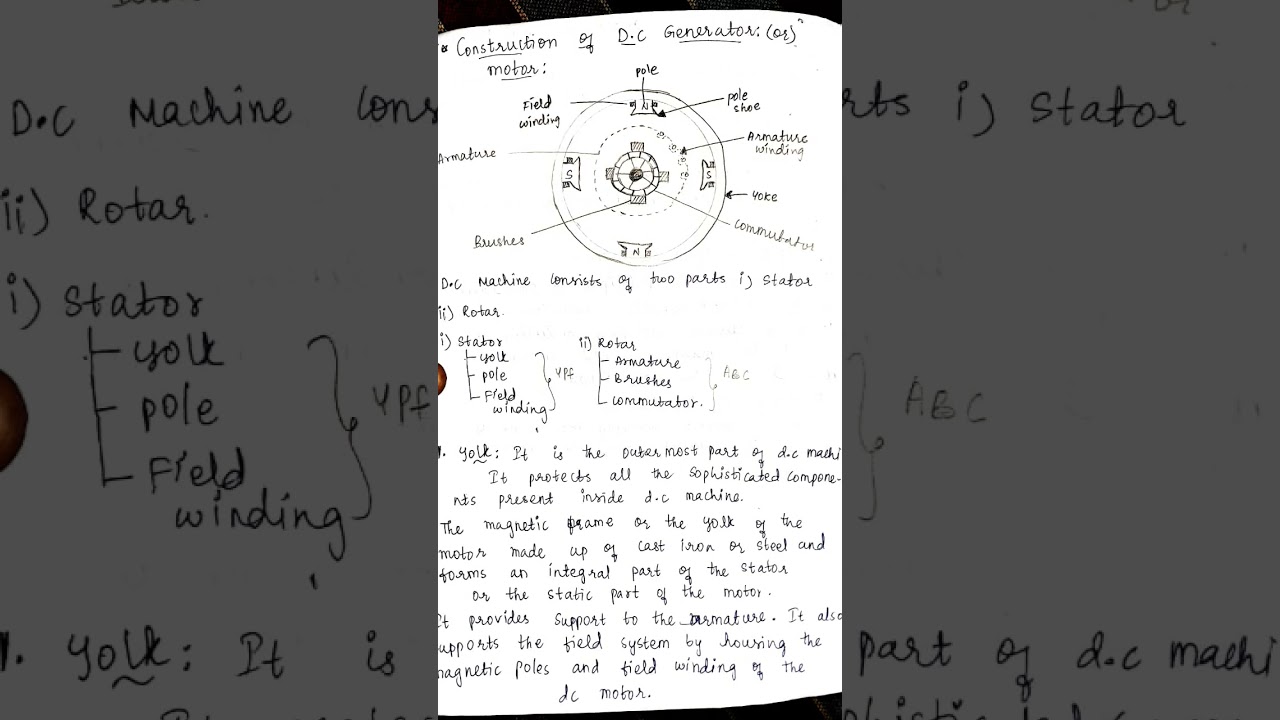 * Construction of D.C Generator: (or)
motor:
pole
Field
winding
pole
shoe
Armature
Armature
winding
N
S
S
YOKE
Brushes
Commutator
N
D.C Machine Consists of two parts i) Stator
ii) Rotar.
i) Stator
yolk
pole
Field
winding
YPf
ii) Rotar
Armature
Brushes
Commutator.
ABC
1. yolk: It is the outermost part of d.c machi
It protects all the sophisticated compone-
nts present inside d.c machine.
The magnetic frame or the yolk of the
motor made up of cast iron or steel and
forms an integral part of the stator
or the static part of the motor.
It provides support to the armature. It also
supports the field system by housing the
magnetic poles and field winding of the
dc motor.
D.C Machine Cons
rts i) Stator
ii) Rotar.
i) Stator
yolk
pole
Field
winding
YPf
ABC
1. yolk: It is
part of d.c machi